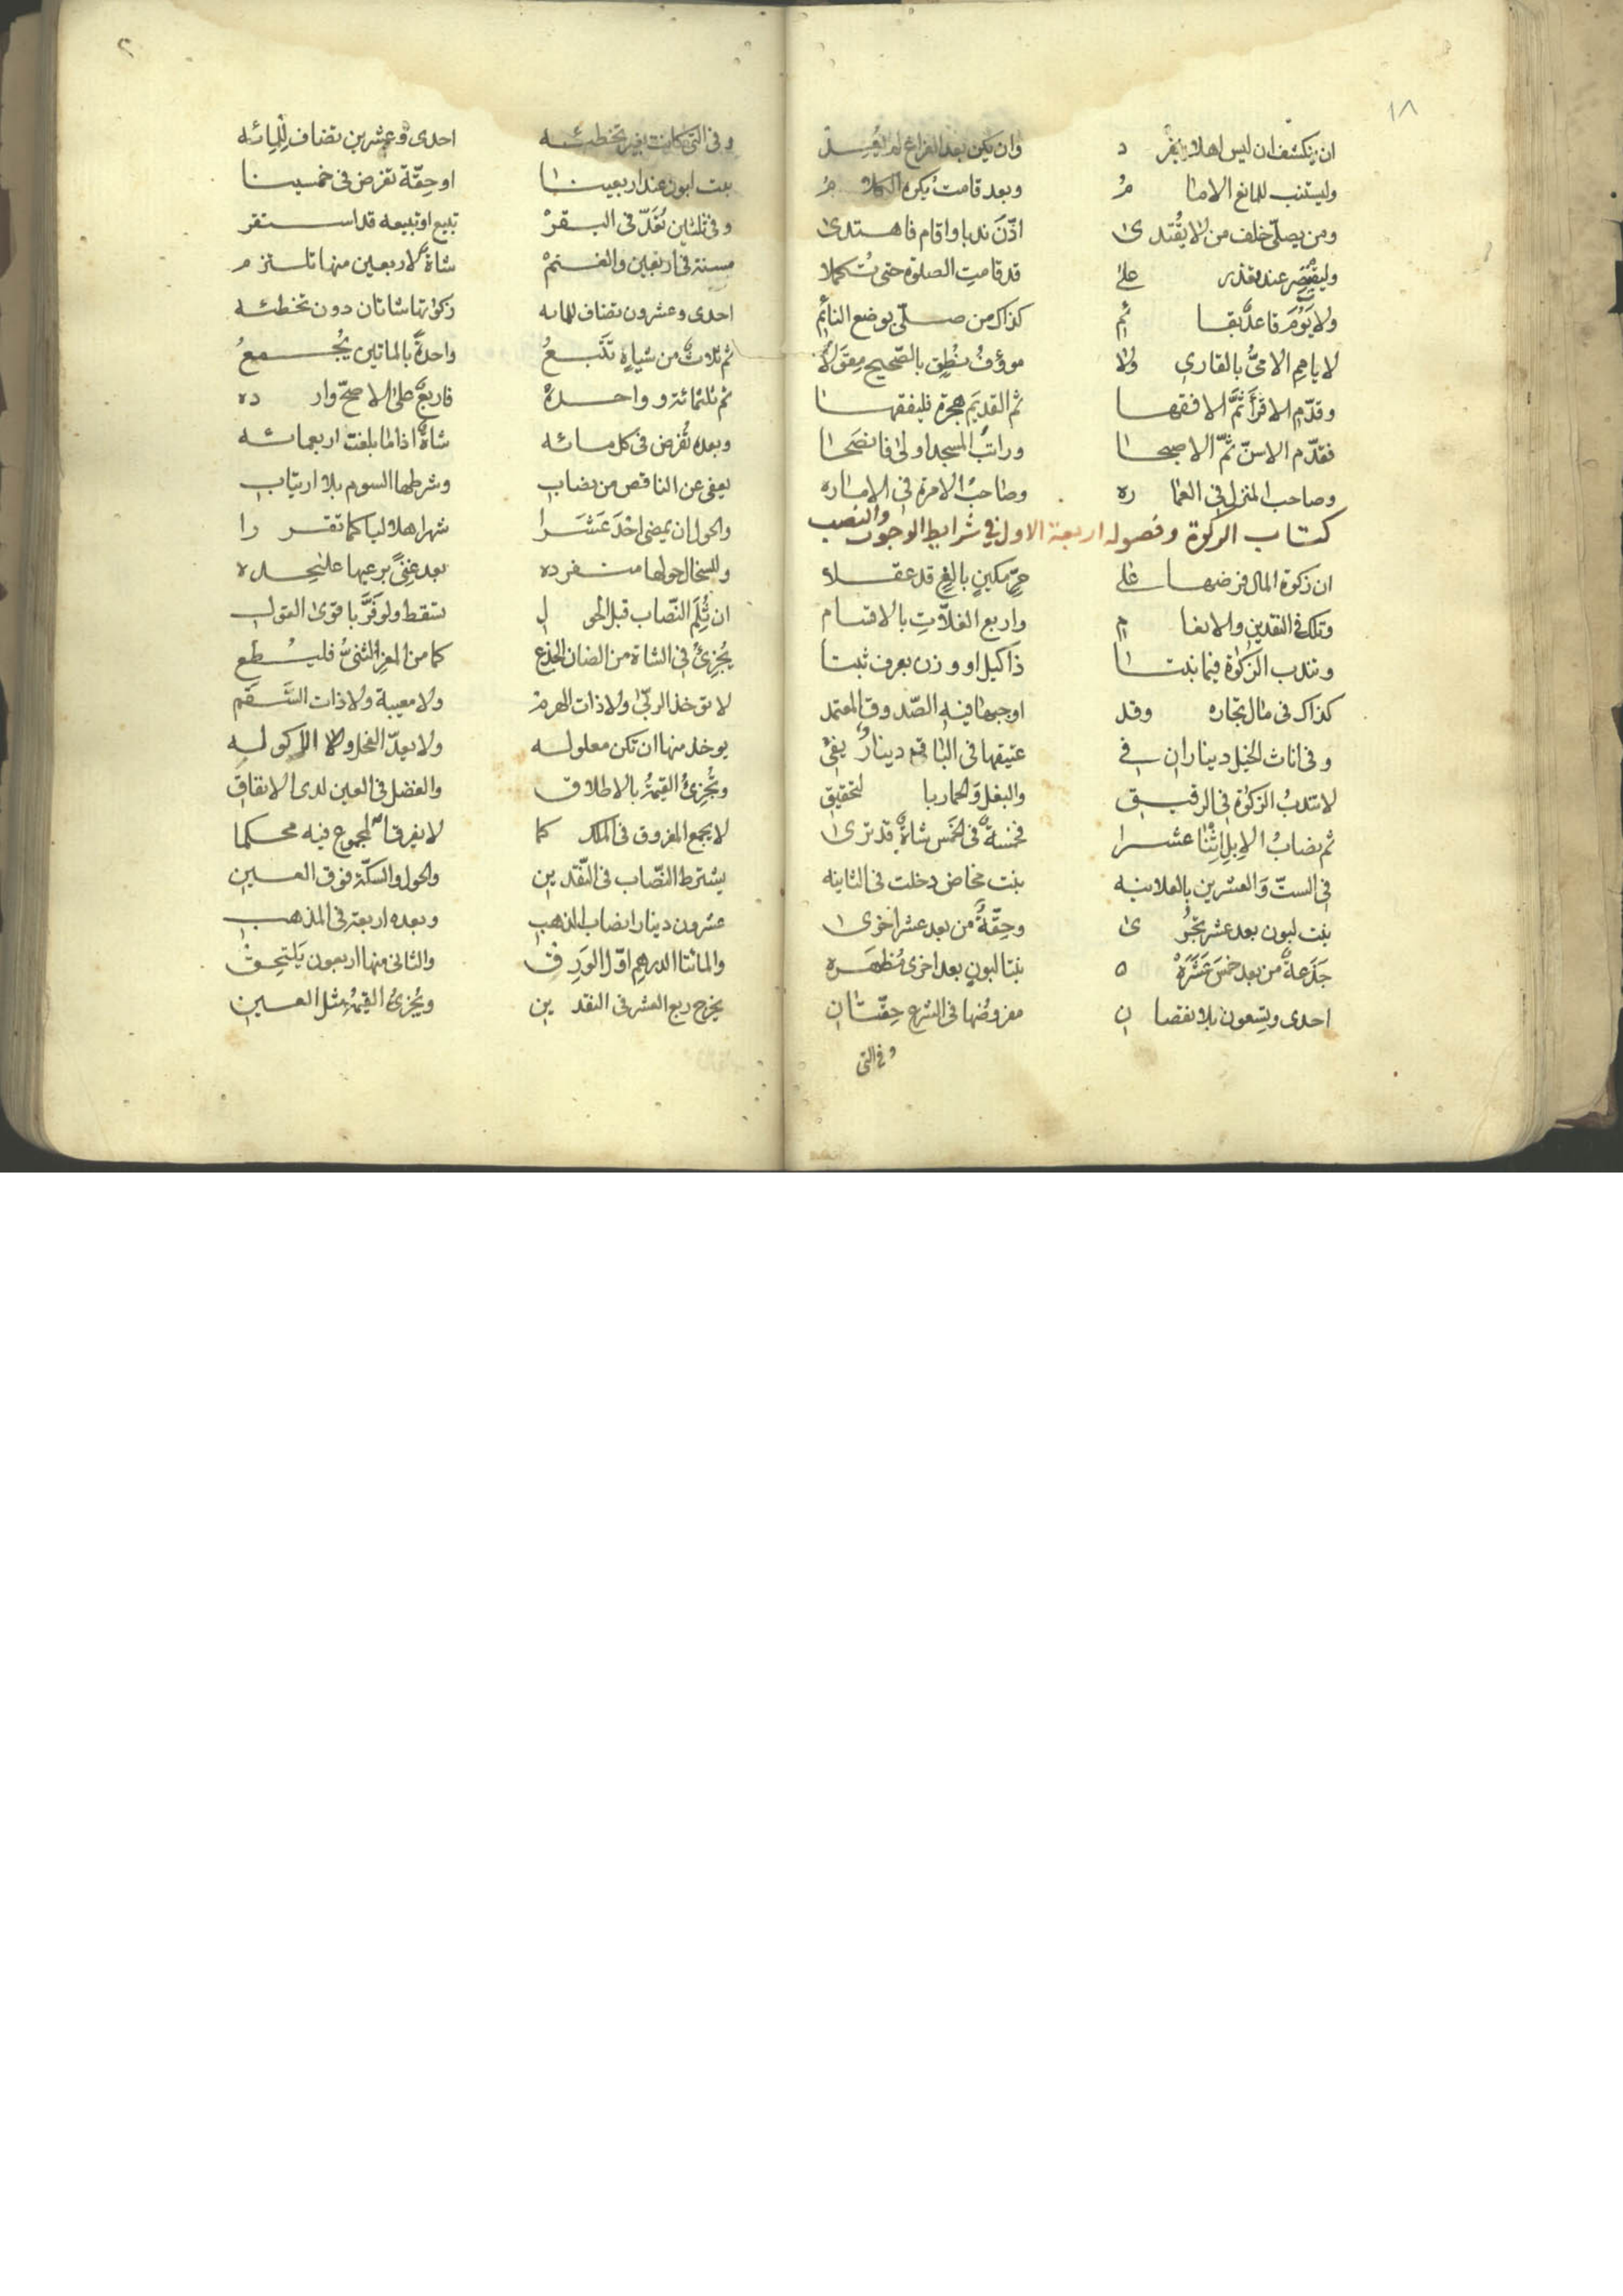 ١٨
ان ينكشف ان ليس اهلا ينفرد وان يكن بعد الفراغ لم يُعِد
وليستنب للمانع الامامُ وبعد قامت يكره الكلامُ
ومن يصلّي خلف من لا يقتدى اذّن ندبا واقام فاهتدى
وليقتصر عند تعذر على قد قامت الصلوة حتى تُكملا
ولا يَؤُم قاعدٌ بقائمٍ كذاك من صلّى بوضع النائم
لا ياممِ الامىُّ بالقاري ولا مووفُ نطق بالصّحيح مِقْوَلا
وقدّم الاقرَأ ثمَّ الافقها ثم القديم هجرة فليفقها
فقدّم الاسنّ ثمّ الاصبحا وراتبُ المسجد اولى فانصحا
وصاحب المنزل في العماره وصاحبُ الامرة في الاماره
كتاب الزكوة وفصوله اربعة الاول في شرايط الوجوب والنصب
ان زكوة المال فرضها على حرّ مكينٍ بالغٍ قد عقلا
وتلك في النقدين والانعام واربع الغلاّتِ بالاقسام
وتندب الزكوة فيما نبتا ذا كيل او وزن بعرف ثبتا
كذاك في مال تجاره وقد اوجبها فيه الصّدوق المعتمد
وفي اناث الخيل ديناران في عتيقها في الباقي دينارٌ يفي
لا تندبُ الزكوة في الرقيق والبغل والحمار بالتحقيق
ثم نصابُ الابِلِ اثنا عشرا فخمسةٌ في الخمس شاةٌ قد ترى
في الستّ وَالعشرين بالعلانيه بنت مخاض دخلت في الثانيه
بنت لبون بعد عشر تجرُى وحِقّةٌ من بعد عشر اخرى
جَذَعةٌ من بعد خمسَ عَشَرَهْ بنتا لبونٍ بعد اخرى مُظهَره
احدى وتسعون بلا نقصان مفروضُها في الشرع حِقّتان
وفي التي
وفي التي كانت بغير تخطئه احدى وعشرين تضاف لِلمِائه
بنت لبون عند اربعينا او حِقّة تفرض في خمسينا
وفي ثلثين تُعَدّ في البقرْ تبيع او تبيعه قد استقر
مسنة في اربعين والغنمْ شاةٌ لاربعين منها تلتزم
احدى وعشرون تضاف للمائه زكوتها شاتان دون تخطئه
ثم ثلاثٌ من شياهٍ تَتْبَعُ واحدةً بالماتين يُجمعُ
ثم ثلثمائة وواحده فاربعٌ على الاصحّ وارده
وبعده تُفرَض في كل مائه شاةٌ اذا ما بلغت اربعمائه
يعفى عن الناقص من نصاب وشرطها السوم بلا ارتيابِ
والحول ان يمضى احْدَ عَشَرا شهرا هلاليا كما تقررا
وللسخال حولها منفرده بعد غِنًى برعيها على حده
ان ثُلِمَ النّصاب قبل الحول تسقط ولو فَرَّ باقوى القول
يُجزِئُ في الشاة من الضان الجذع كما من المعز الثنىُّ فليُطع
لا تؤخذ الربّى ولا ذات الهرمْ ولا معيبة ولا ذات السَّقَم
يوخذ منها ان تكن معلوله ولا يعدّ الفحل ولا الاكوله
وتُجزِئُ القيمةُ بالاطلاق والفضل في العين لدى الانفاق
لا يجمع المفروق في الملك كما لا يفرق المجموع فيه محكما
يشترط النّصاب في النّقدين والحول والسكّة فوق العين
عشرون دينارا نصاب الذهب وبعده اربعة في المذهب
والمائتا الدرهم اوّل الوَرِق والثانى منها اربعون يَلتحِقْ
يخرج ربع العشر في النقدين ويُجزئُ القيمةُ مثل العين